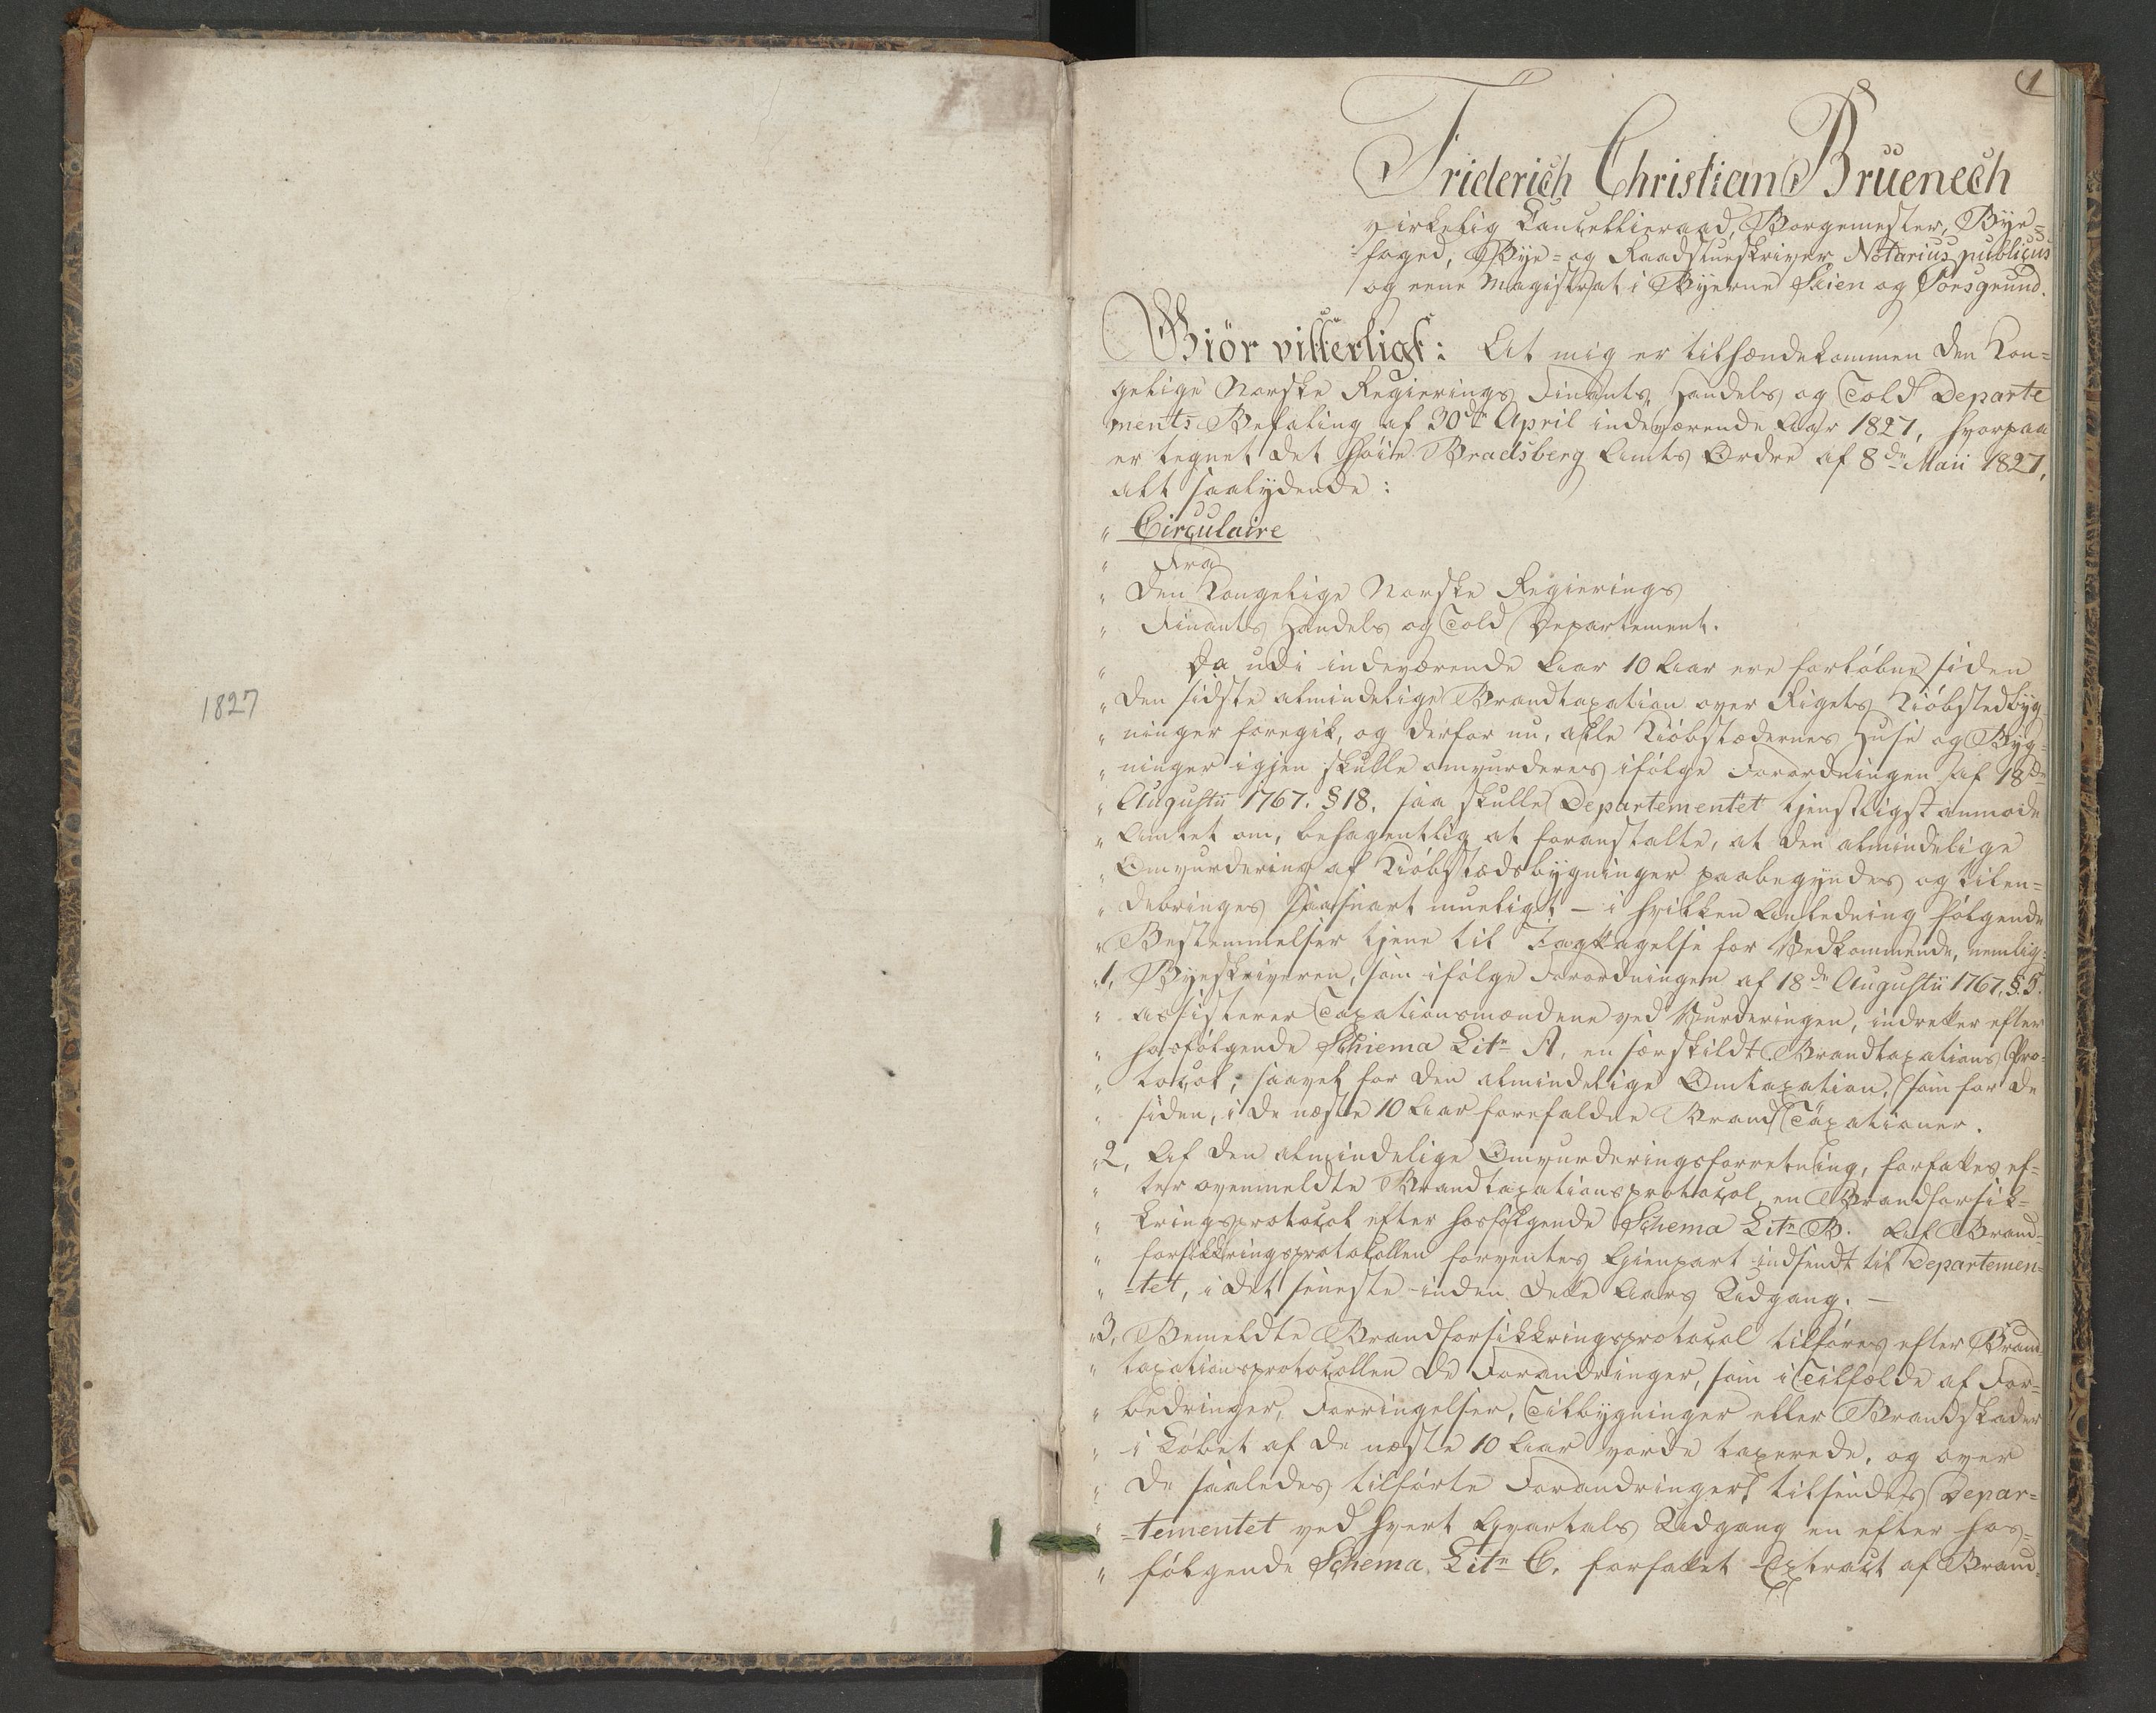 1827
1
Friderich Christian Bruenech
virkelig Cancellieraad, Borgemester, Bye-
foged, Bye- og Raadstueskriver Notarius publicus
og eene Magistrat i Byerne Skien og Porsgrund.
Giör vitterligt: At mig er tilhændekommen den Kon=
gelige Norske Regierings Finants, Handels og Told Departe
ments Befaling af 30de April indeværende Aar 1827, hvorpaa
er tegnet det høie Bradsberg Amts Ordre af 8de Maii 1827,
alt saalydende:
" Circulaire
" Fra
" Den Kongelige Norske Regierings
" Finants Handels og Told Departement.
" Da udi indeværende Aar 10 Aar ere forløbne siden
" den sidste almindelige Brandtaxation over Rigets Kiøbstedbyg-
" ninger foregik, og derfor nu, alle Kiøbstædernes Huse og Byg-
" ninger igjen skulle omvurderes ifølge Forordningen af 18de
" Augustii 1767. § 18. saa skulle Departementet tjenstligst anmode
" Amtet om, behagentlig at foranstalte, at den almindelige
" Omvurdering af Kiøbstædsbygninger paabegyndes og tilen=
" debringes saasnart mueligt - i hvilken Anledning følgende
" Bestemmelser tjene til Iagttagelse for Vedkommende, nemlig:
" 1, Byeskriveren, som ifølge Forordningen af 18de Augustii 1767. §. 5.
" assisterer Taxationsmændene ved Vurderingen, indretter efter
" hosfølgende Schiema Litr A, en særskildt Brandtaxations Pro-
" tocol, saavel for den almindelige Omtaxation, som for de
" siden, i de næste 10 Aar forefaldne Brand Taxationer.
" 2, Af den almindelige Omvurderingsforretning, forfattes ef=
" ter ovenmeldte Brandtaxationsprotocol en Brandforsik-
" kringsprotocol efter hosfølgende Schema Litr B. Af Brand-
" forsikkringsprotokollen forventes Gienpart indsendt til Departemen=
" =tet, i det seneste inden dette Aars Udgang. -
" 3, Bemeldte Brandforsikkringsprotocol tilføres efter Brand-
" taxationsprotocollen de Forandringer, som i Tilfælde af For=
" bedringer, Forringelser, Tilbygninger eller Brandskader
" i Løbet af de næste 10 Aar vorde taxerede, og over
" de saaledes tilførte Forandringer, tilsendes Depar=
" =tementet ved hvert Qvartals Udgang en efter hos=
" følgende Schema Litr C. forfattet Extract af Brand-